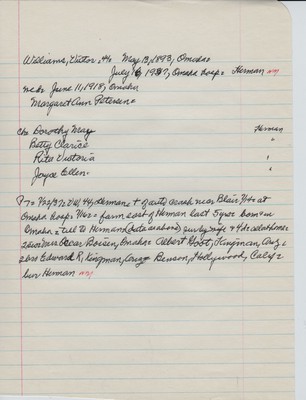 Williams, Victor, 44 May 13, 1893, Omaha
July 16 1937, Omaha hosp = Herman
m ch June 11, 1918, Omaha
Margaret Ann Petersen =
Ch= Dorothy May Herman
Betty Clarice "
Rita Victoria "
Joyce Ellen = "
Victor, 44, Herman = auto crash near Blair 7/ at
Omaha hosp. Was = farm east of Herman last 5 yrs born in
Omaha = to Herman (date as above) sur by wife + 4 ds as above =
2 sis Mrs Oscar Boisen, Omaha = Albert Goot, Kingman, Ariz =
2 bros Edward R, Kingman, Ariz = Benson, Hollywood, Calif =
bur Herman